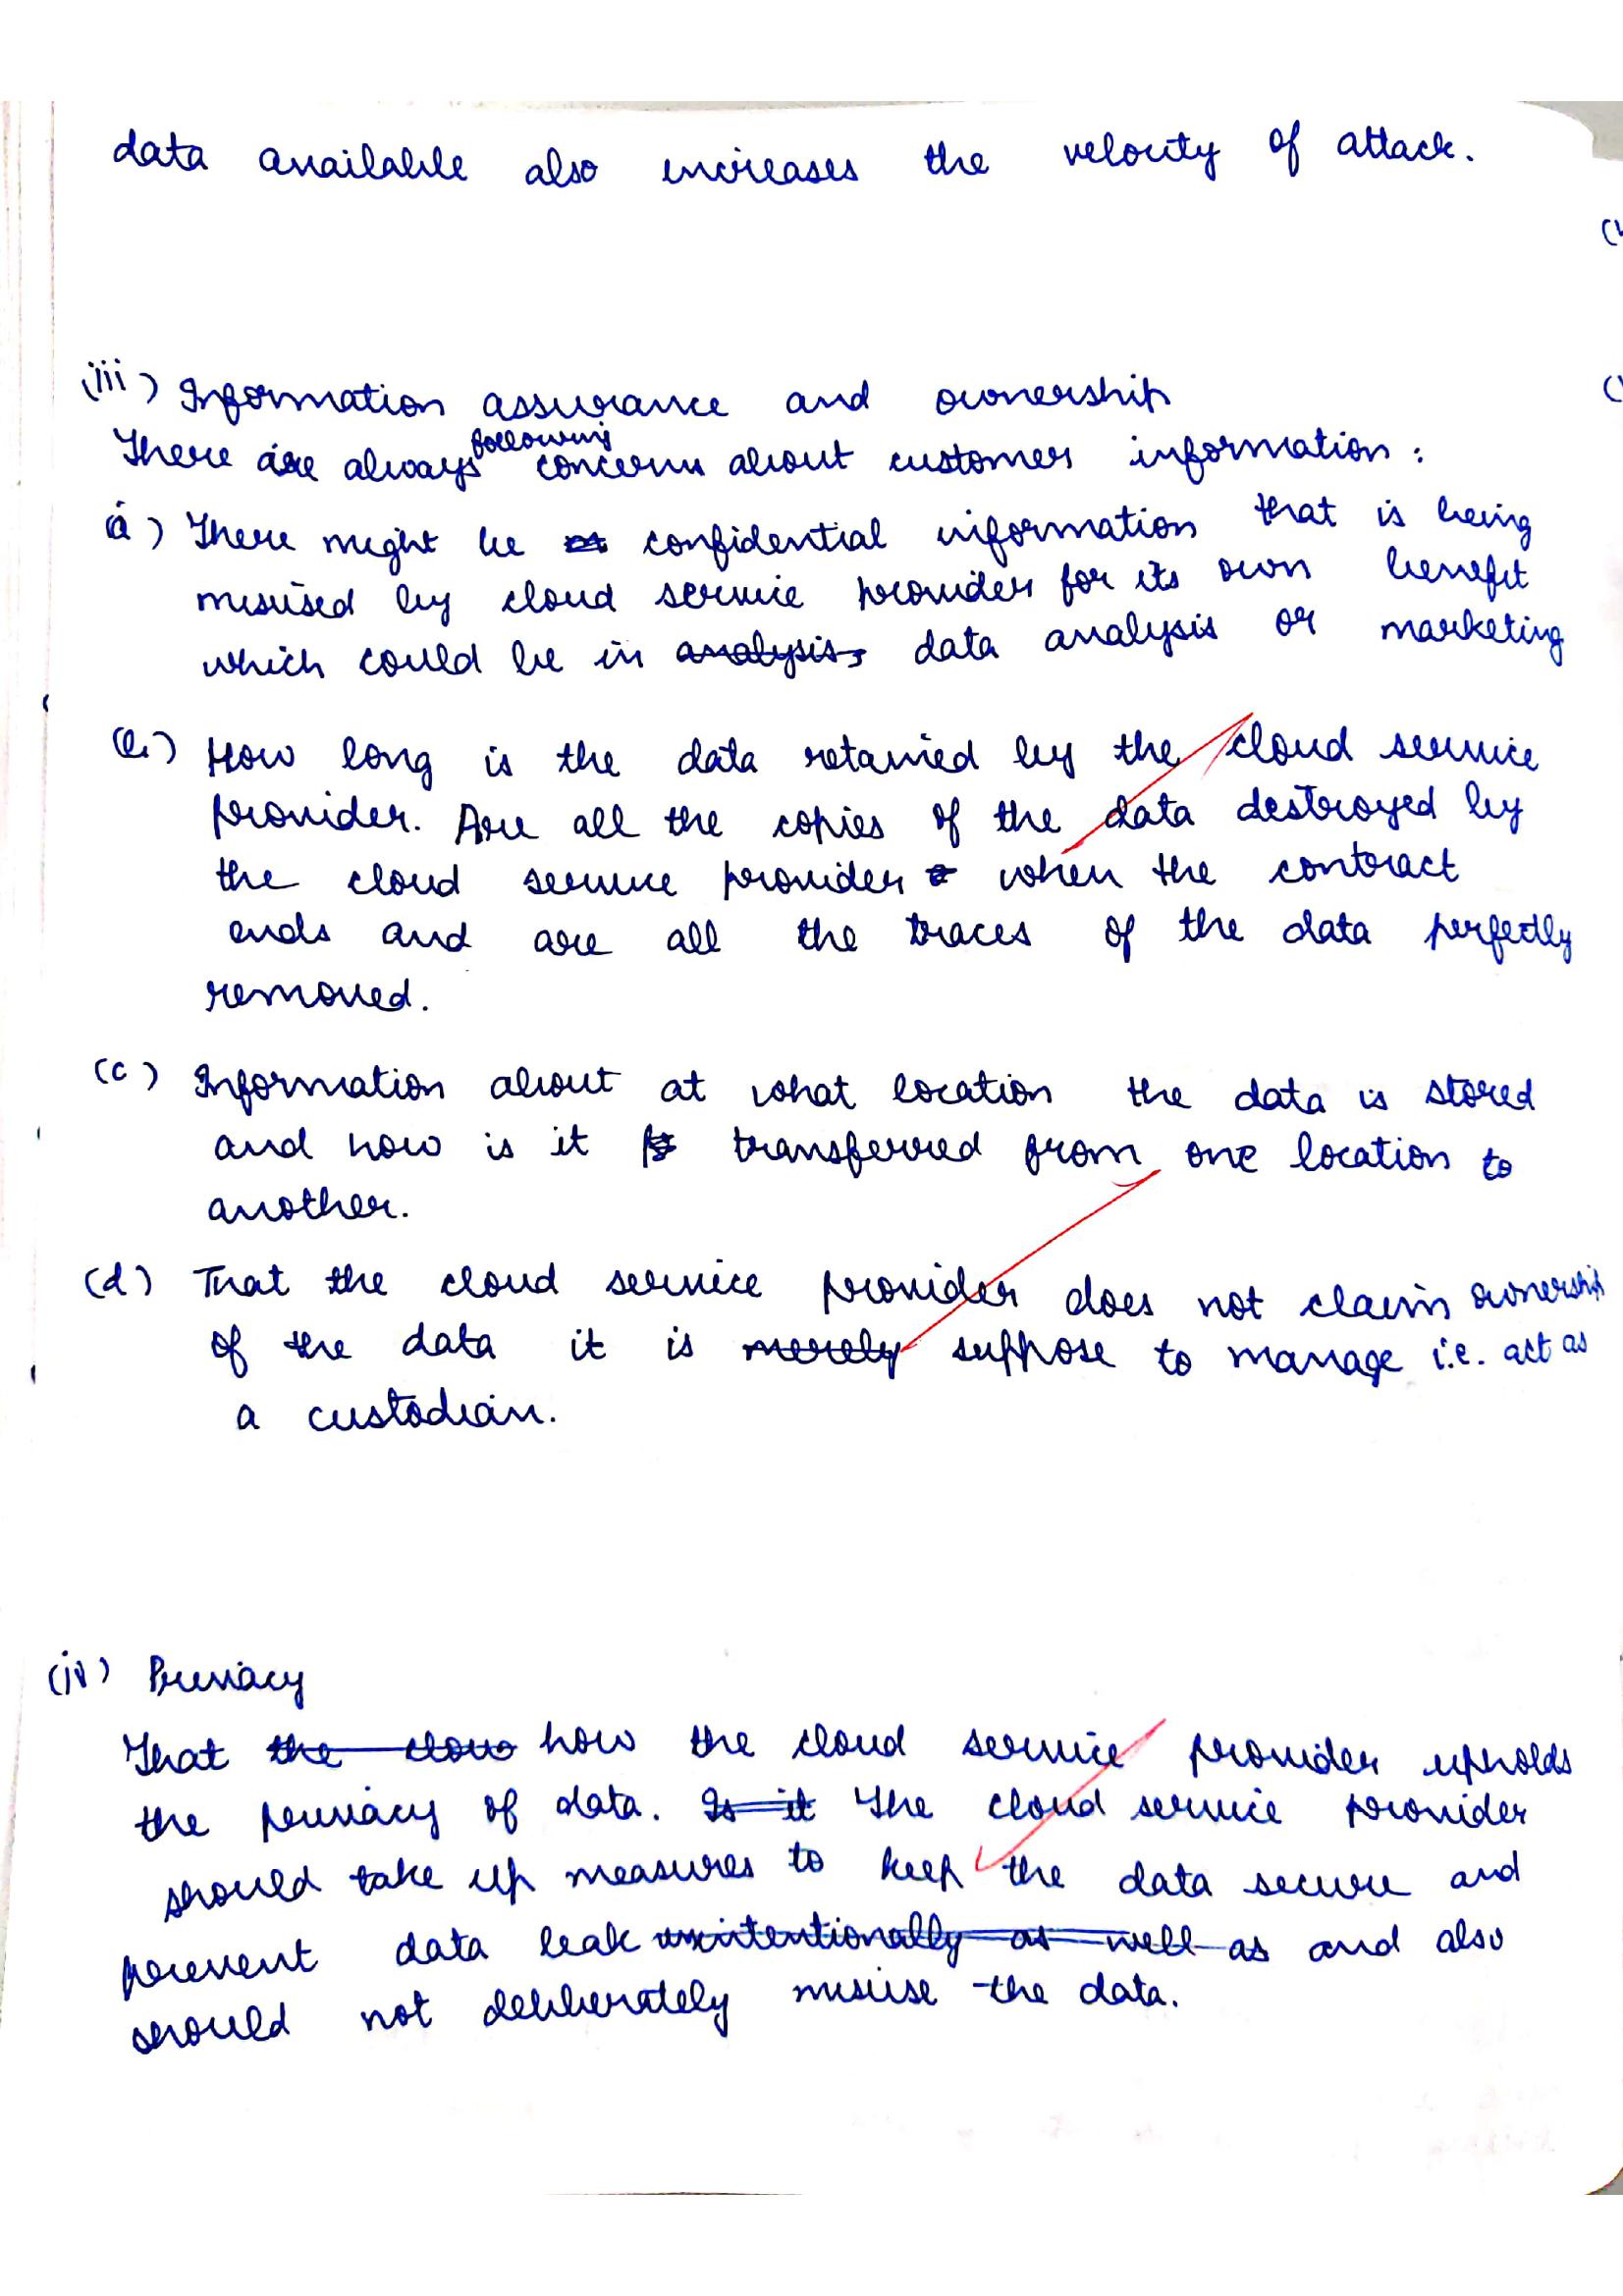 data available also increases the velocity of attack.
(iii) Information assurance and ownership
There are always following concerns about customer information :
(a) There might be confidential information that is being
misused by cloud service provider for its own benefit
which could be in analysis, data analysis or marketing
(b) How long is the data retained by the cloud service
provider. Are all the copies of the data destroyed by
the cloud service provider when the contract
ends and are all the traces of the data perfectly
removed.
(c) Information about at what location the data is stored
and how is it transferred from one location to
another.
(d) That the cloud service provider does not claim ownership
of the data it is merely suppose to manage i.e. act as
a custodian.
(iv) Privacy
That the clou how the cloud service provider upholds
the privacy of data. Is it The cloud service provider
should take up measures to keep the data secure and
prevent data leak unintentionally as well as and also
should not deliberately misuse the data.